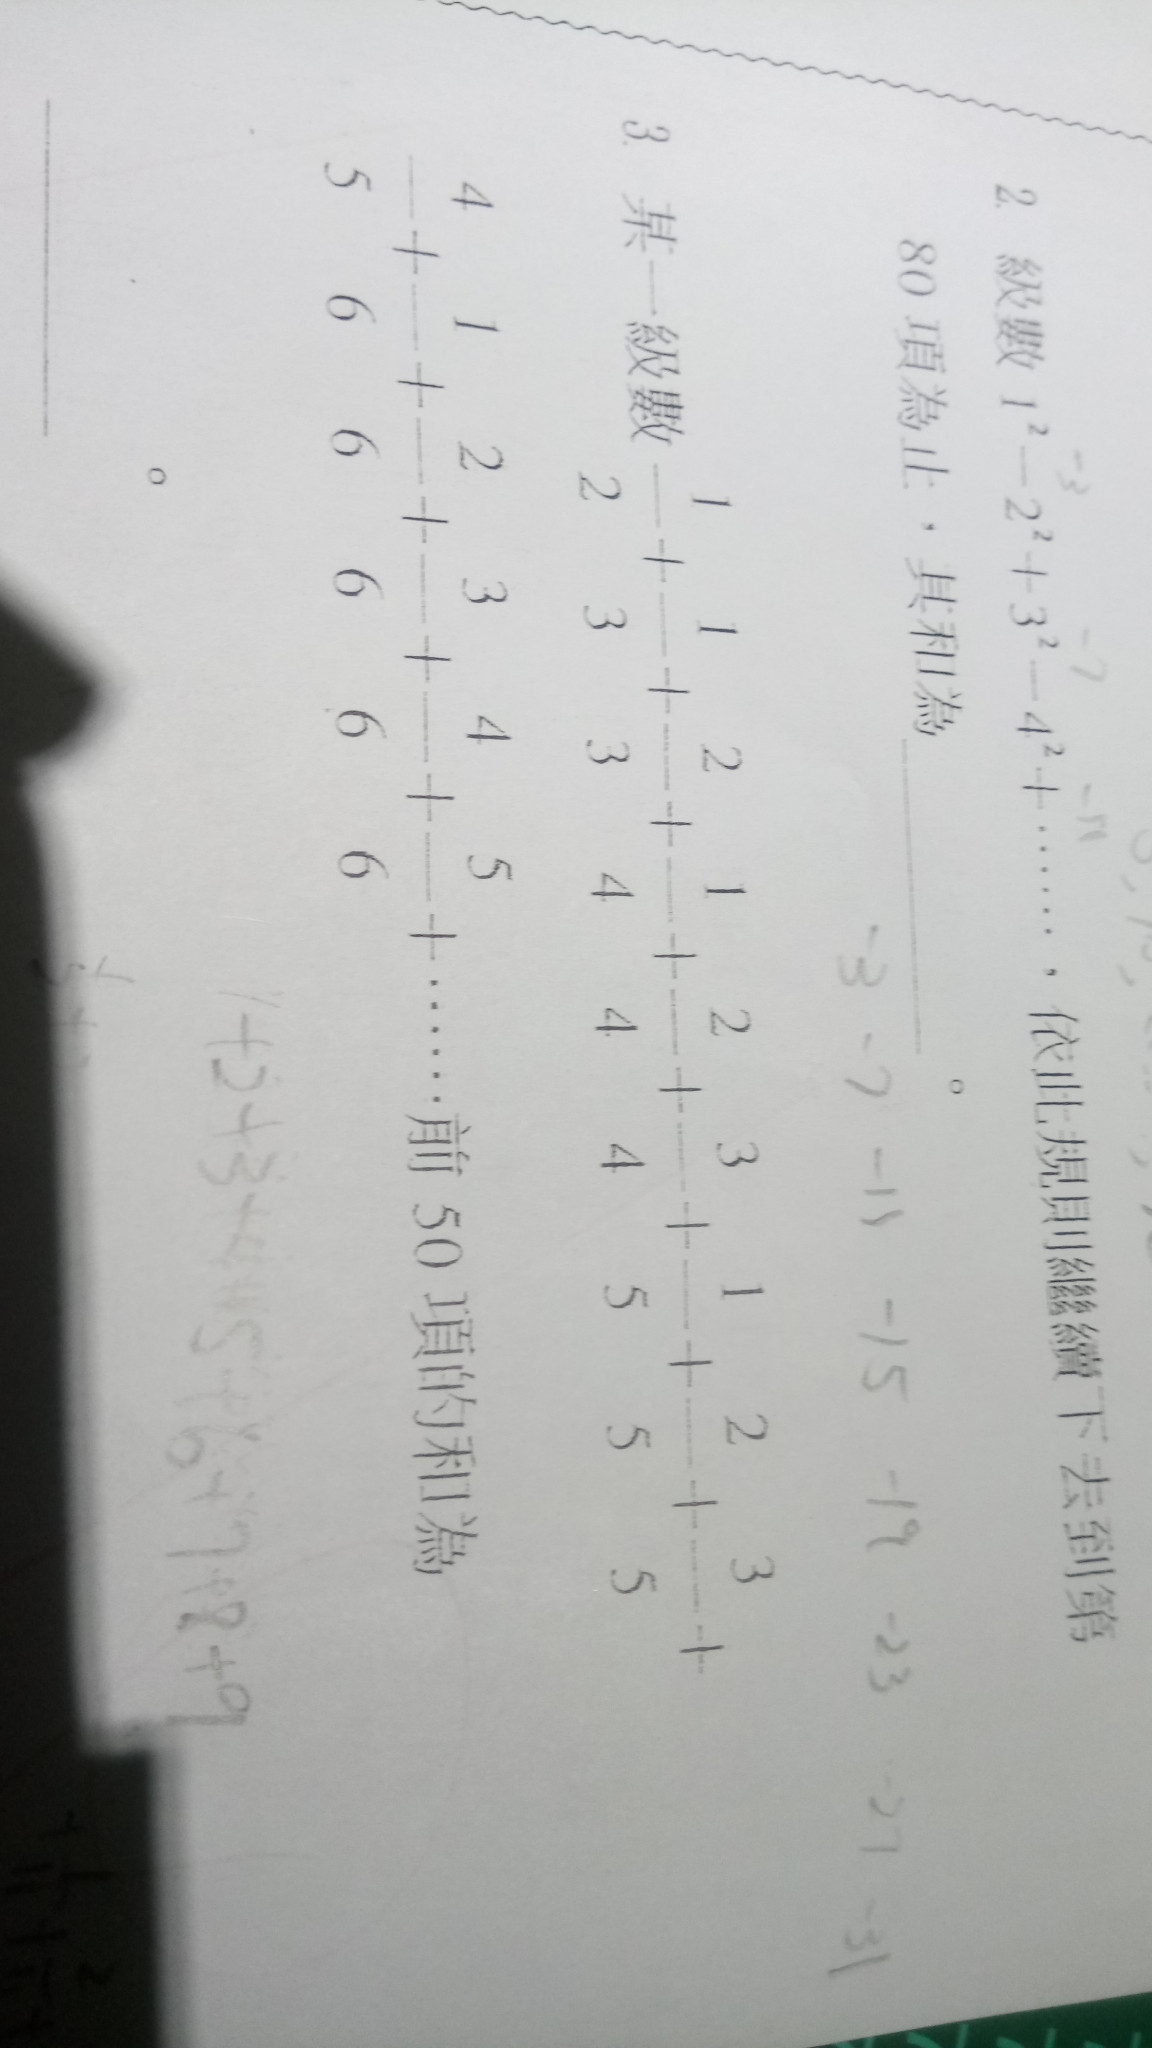 2. 級數 1² － 2² ＋ 3² － 4² ＋ ……，依此規則繼續下去到第
-3 -7 -11
80 項為止，其和為＿＿＿＿。
-3 -7 -11 -15 -19 -23 -27 -31
3. 某一級數 1/2 + 1/3 + 2/3 + 1/4 + 2/4 + 3/4 + 1/5 + 2/5 + 3/5 +
4/5 + 1/6 + 2/6 + 3/6 + 4/6 + 5/6 + ……前 50 項的和為
＿＿＿＿。
1+2+3+4+5+6+7+8+9